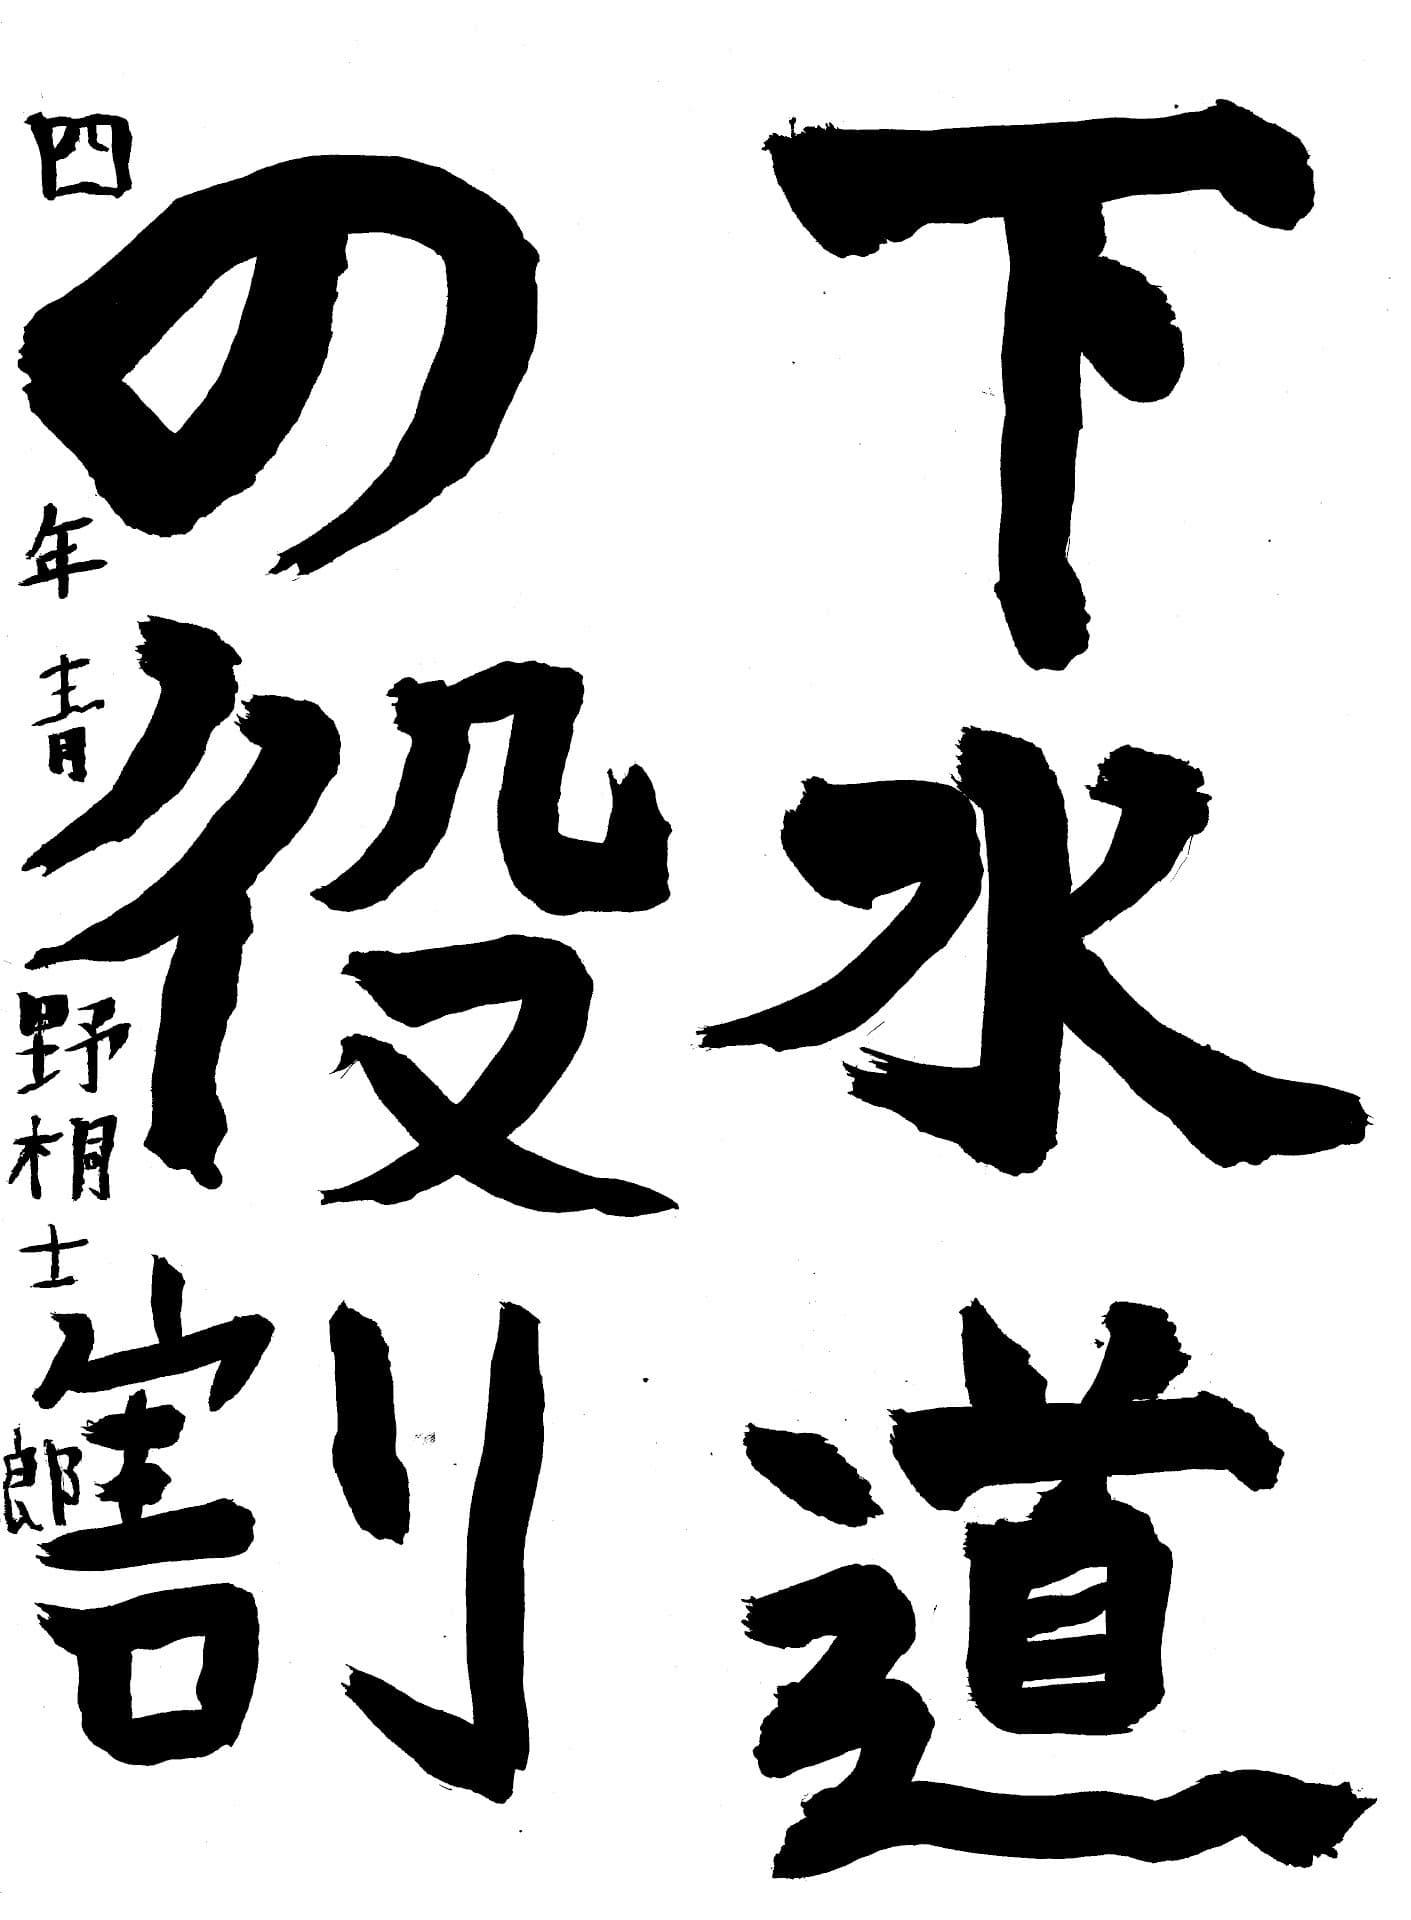 下水道
の役割
四年青野桐士郎